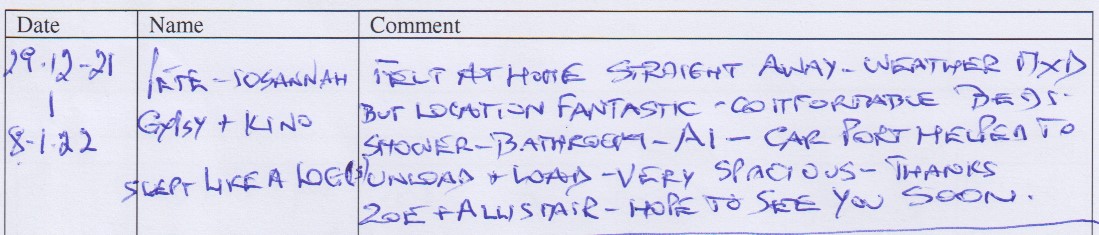 Date Name Comment
29.12-21 PETE - JOSANNAH FELT AT HOME STRAIGHT AWAY - WEATHER MXD
| GYPSY + KINO BUT LOCATION FANTASTIC - COMFORTABLE BEDS.
8-1-22 SHOWER - BATHROOM - A1 - CAR PORT HELPED TO
SLEPT LIKE A LOG(S) UNLOAD + LOAD - VERY SPACIOUS - THANKS
ZOE + ALLISTAIR - HOPE TO SEE YOU SOON.